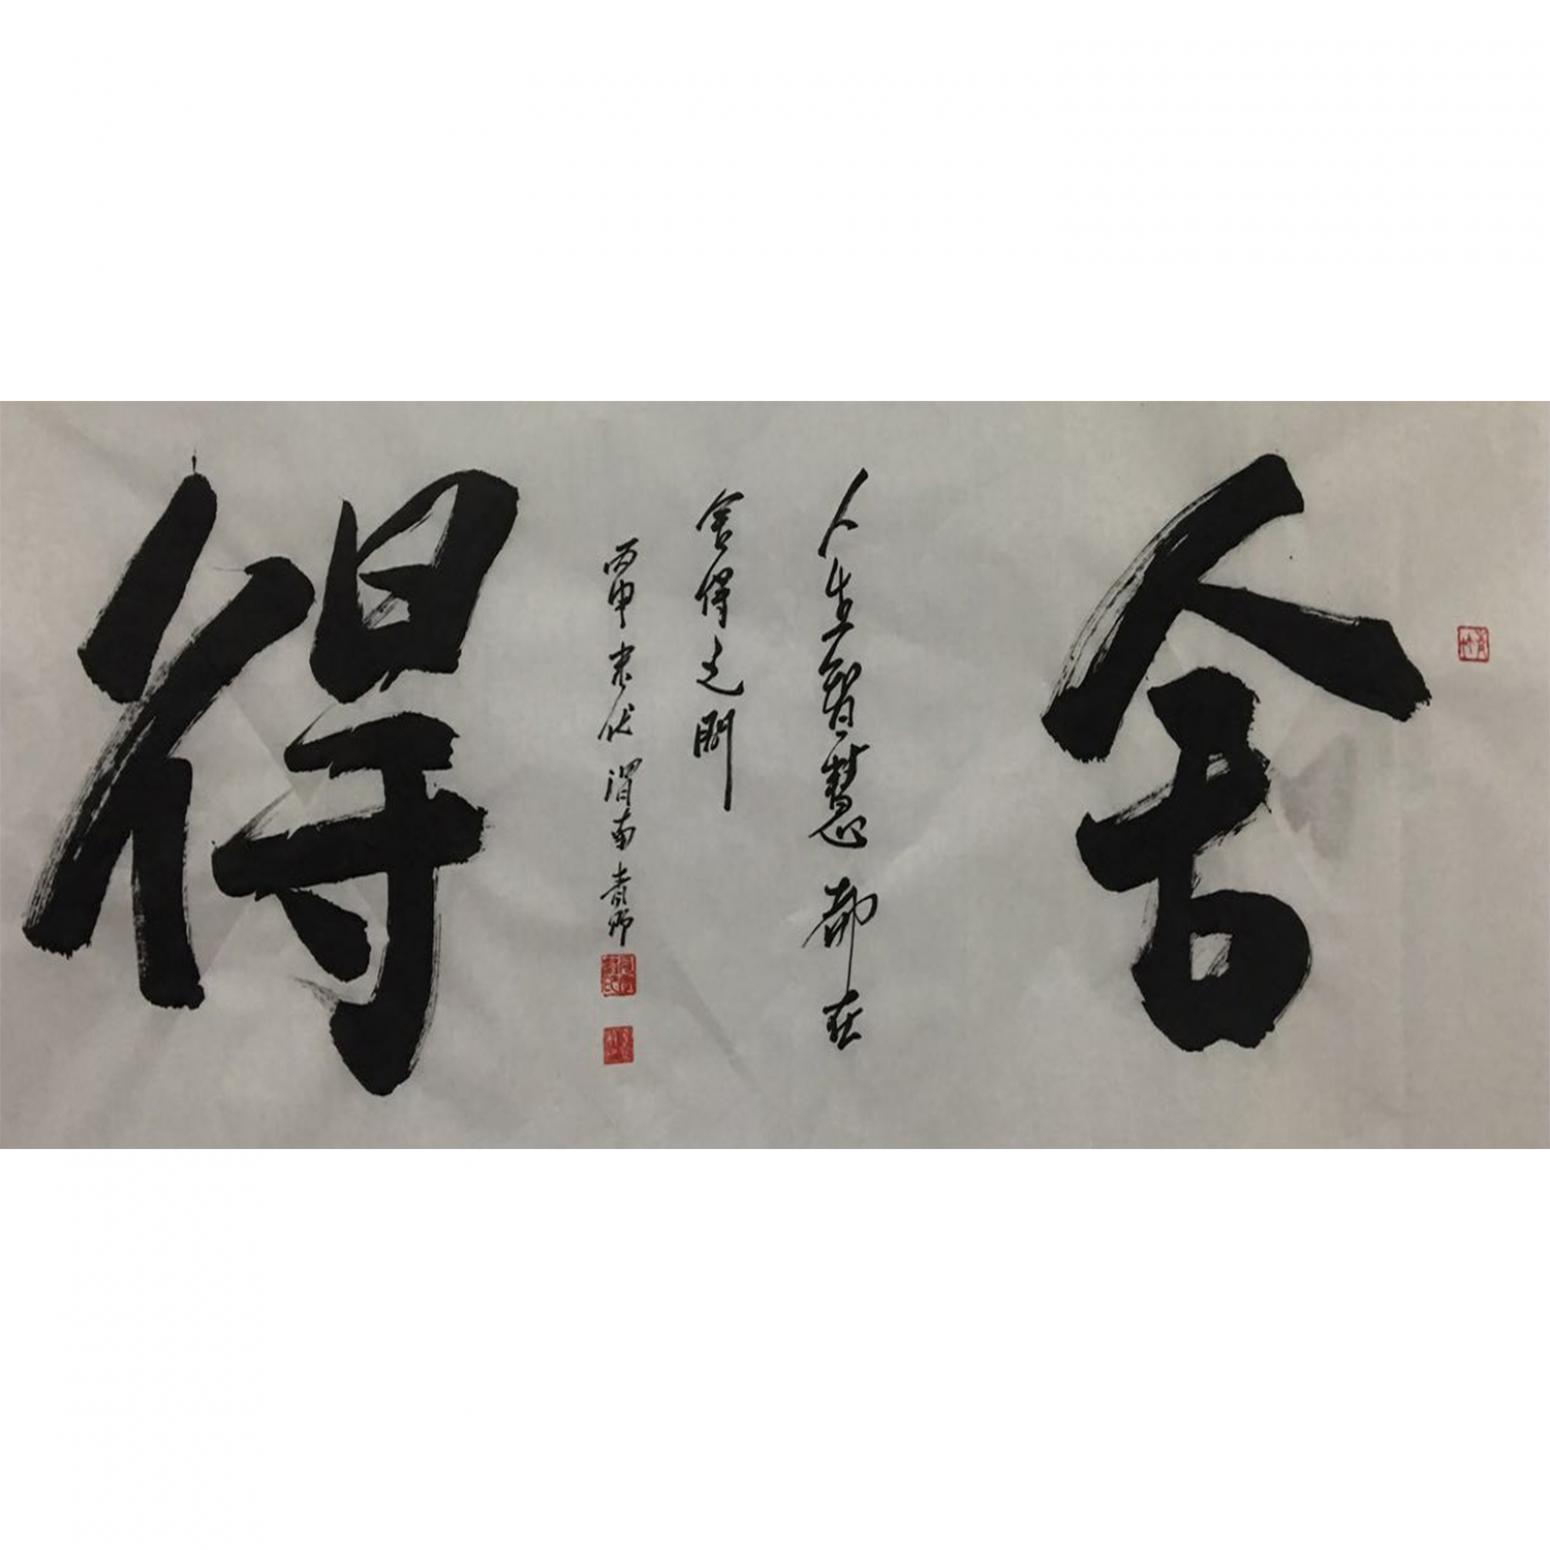 舍
人生智慧都在
舍得之間
丙申末伏渭南
得